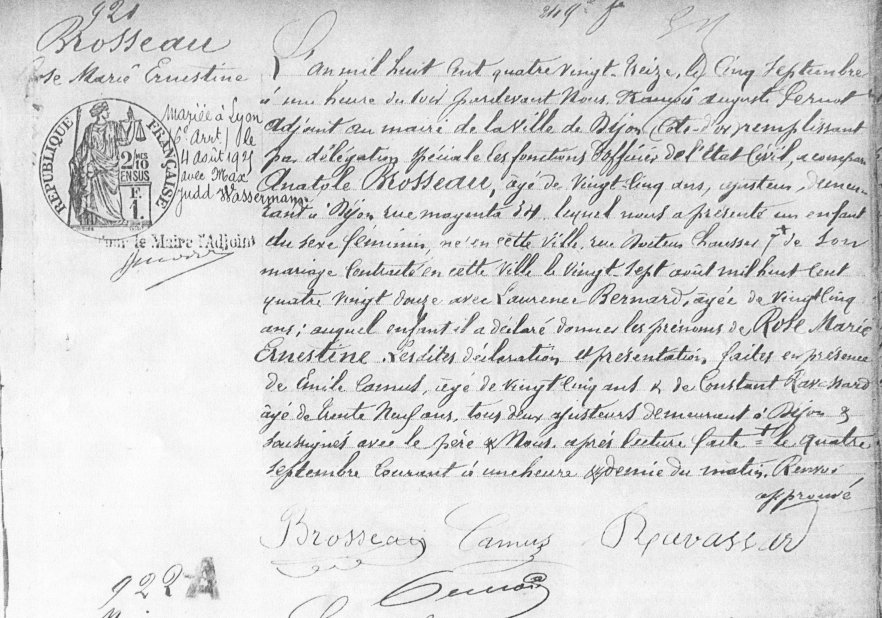 921
Brosseau
Rose Marie Ernestine
RÉPUBLIQUE FRANÇAISE
2/10 EN SUS
F
1.
mariée à Lyon
6e arrt, le
4 août 1921
avec Max
Judd Wassermann
Pour le Maire l'Adjoint
L'an mil huit cent quatre vingt-treize, le cinq Septembre
à une heure du soir pardevant Nous, François auguste
adjoint au maire de la Ville de Dijon (Côte-d'or) remplissant
par délégation spéciale les fonctions d'officier de l'Etat Civil, a comparu
Anatole Brosseau, âgé de vingt-cinq ans, ajusteur, demeu-
rant à Dijon rue magenta 34, lequel nous a présenté un enfant
du sexe féminin, né en cette Ville, rue de son
mariage contracté en cette Ville le vingt-sept août mil huit cent
quatre vingt douze avec Laurence Bernard, âgée de vingt cinq
ans; auquel enfant il a déclaré donner les prénoms de Rose Marie
Ernestine. Lesdites déclaration et présentation, faites en présence
de Emile Camus, âgé de vingt cinq ans & de Constant Ravassard
âgé de trente neuf ans, tous deux ajusteurs demeurant à Dijon &
soussignés avec le père & Nous, après lecture faite = + le quatre
Septembre courant à une heure & demie du matin. Renvoi
approuvé
Brosseau Camus Ravassard
922